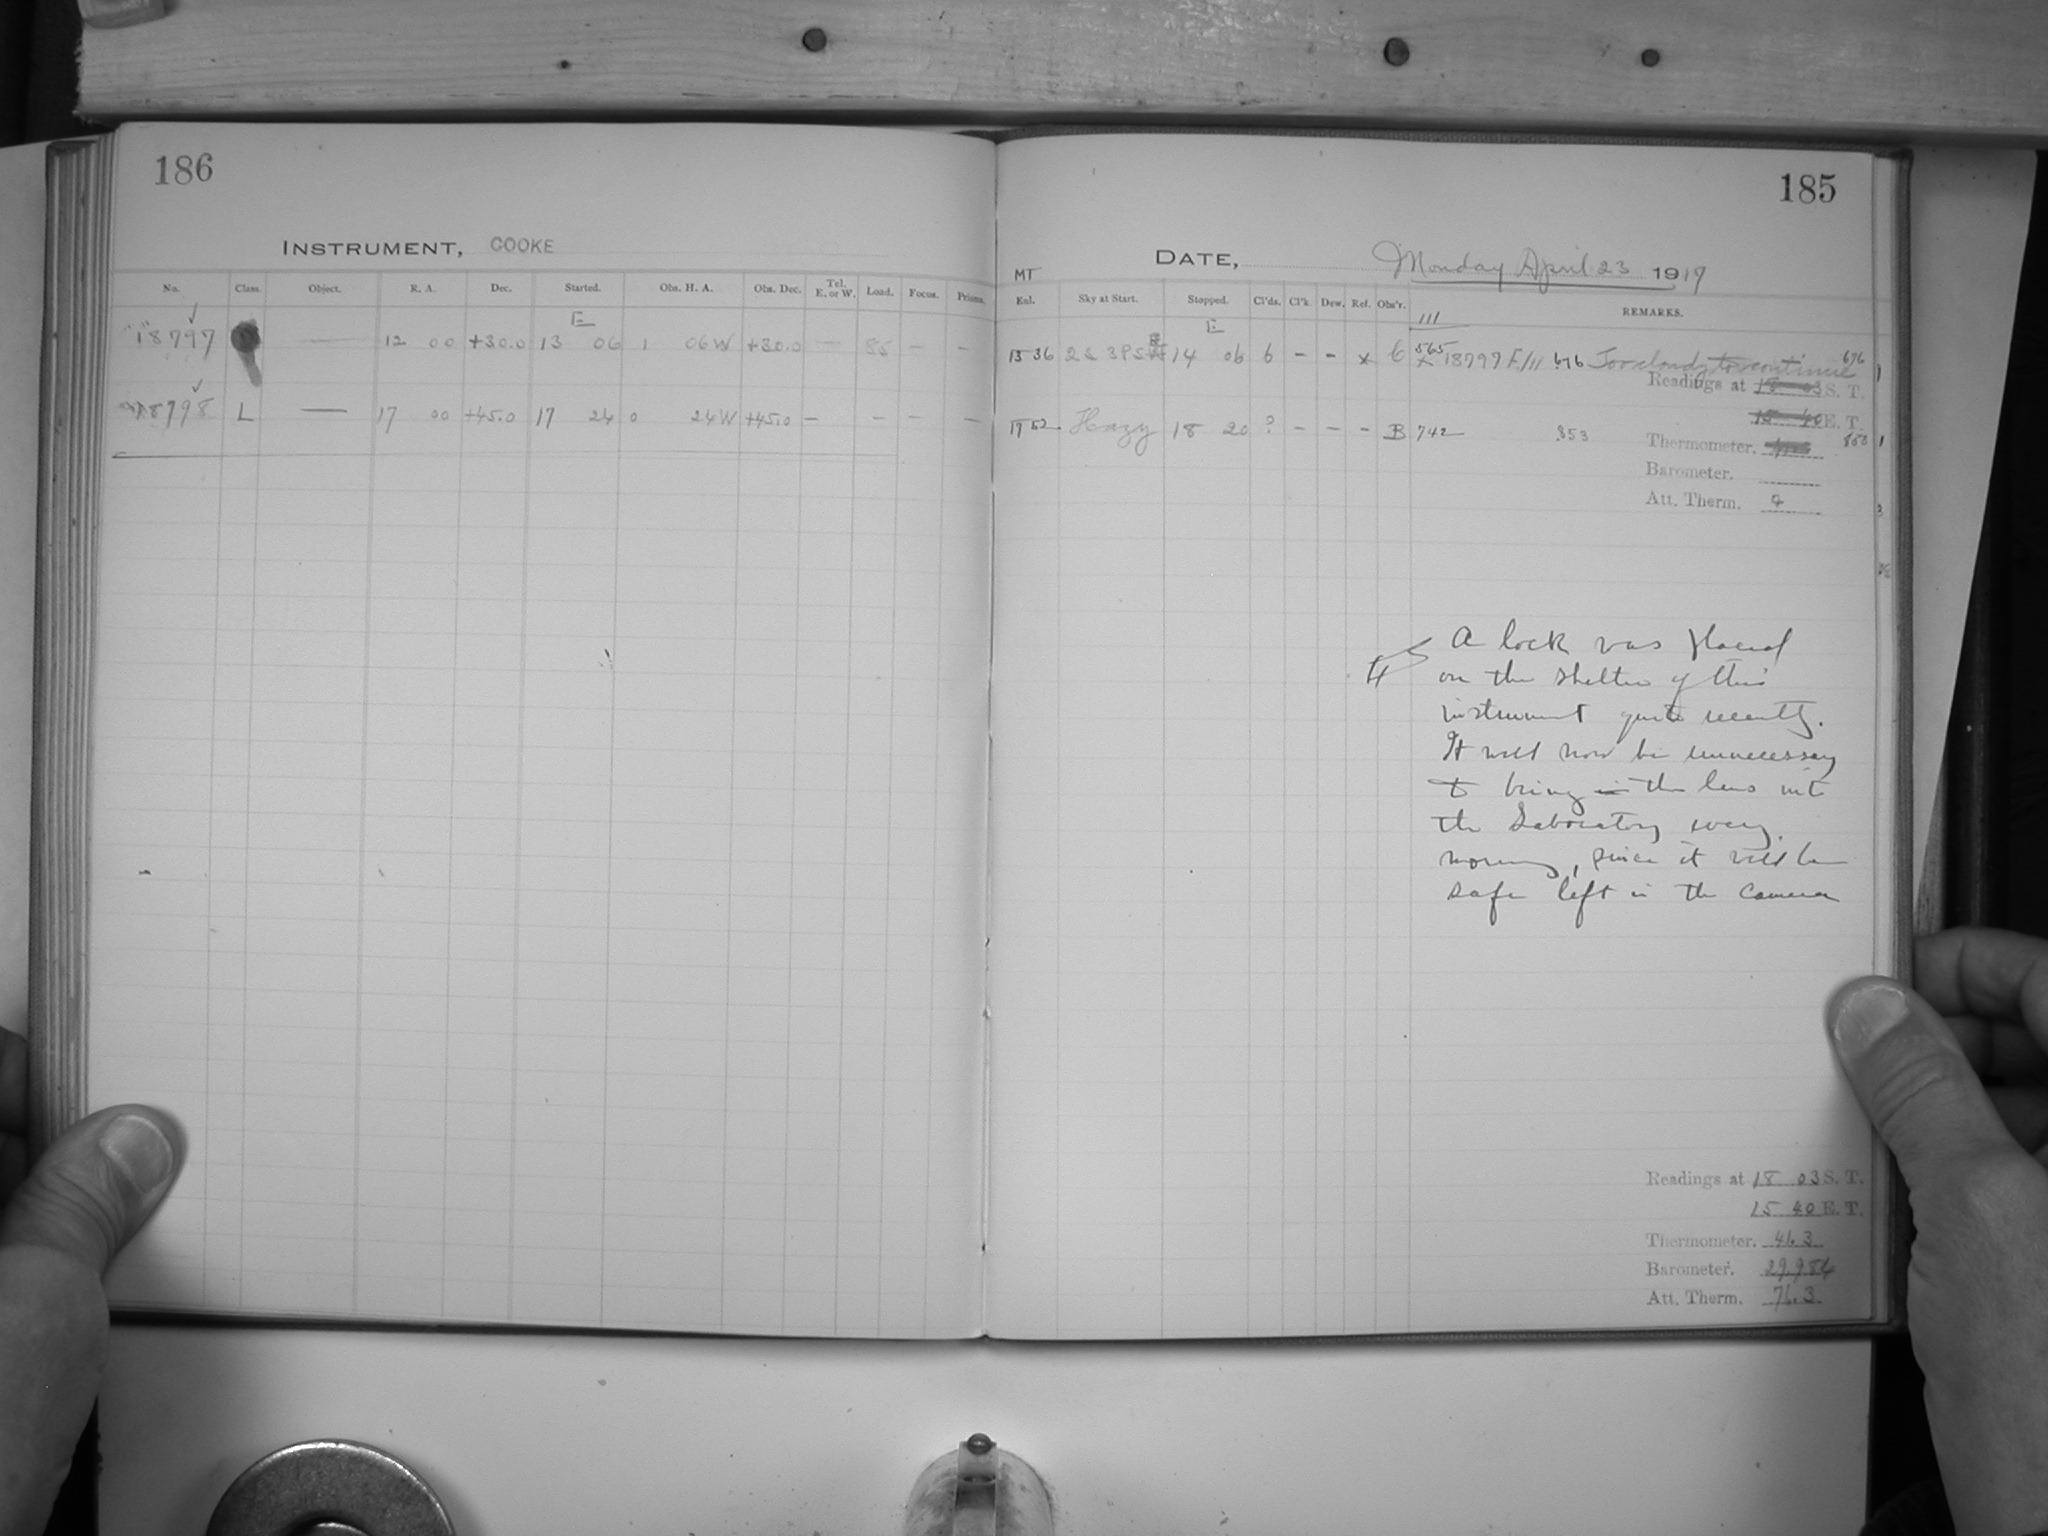 186
INSTRUMENT, COOKE
No. Class. Object. R. A. Dec. Started. Obs. H. A. Obs. Dec. Tel. E. or W. Load. Focus. Prisms.
E
18797 — 12 00 +30.0 13 06 1 06W +30.0 — 85 — —
18798 L — 17 00 +45.0 17 24 0 24W +45.0 — — — —
185
DATE, Monday April 23 1917
MT
Exl. Sky at Start. Stopped. Cl'ds. Cl'k. Dew. Ref. Obs'r. REMARKS.
E
13 36 2S 3PS 14 06 6 – – x C 565 18797 F/11 676 Too cloudy to continue 676
Readings at 18 03 S. T.
15 40 E. T.
17 52 Hazy 18 20 ? – – – B 742 853
Thermometer.
Barometer.
Att. Therm.
A lock was placed
on the shelter of this
instrument quite recently.
It will now be unnecessary
to bring in the lens into
the Laboratory every
morning, since it will be
safe left in the camera
Readings at 18 03 S. T.
15 40 E. T.
Thermometer. 46.3
Barometer. 29.984
Att. Therm. 76.3